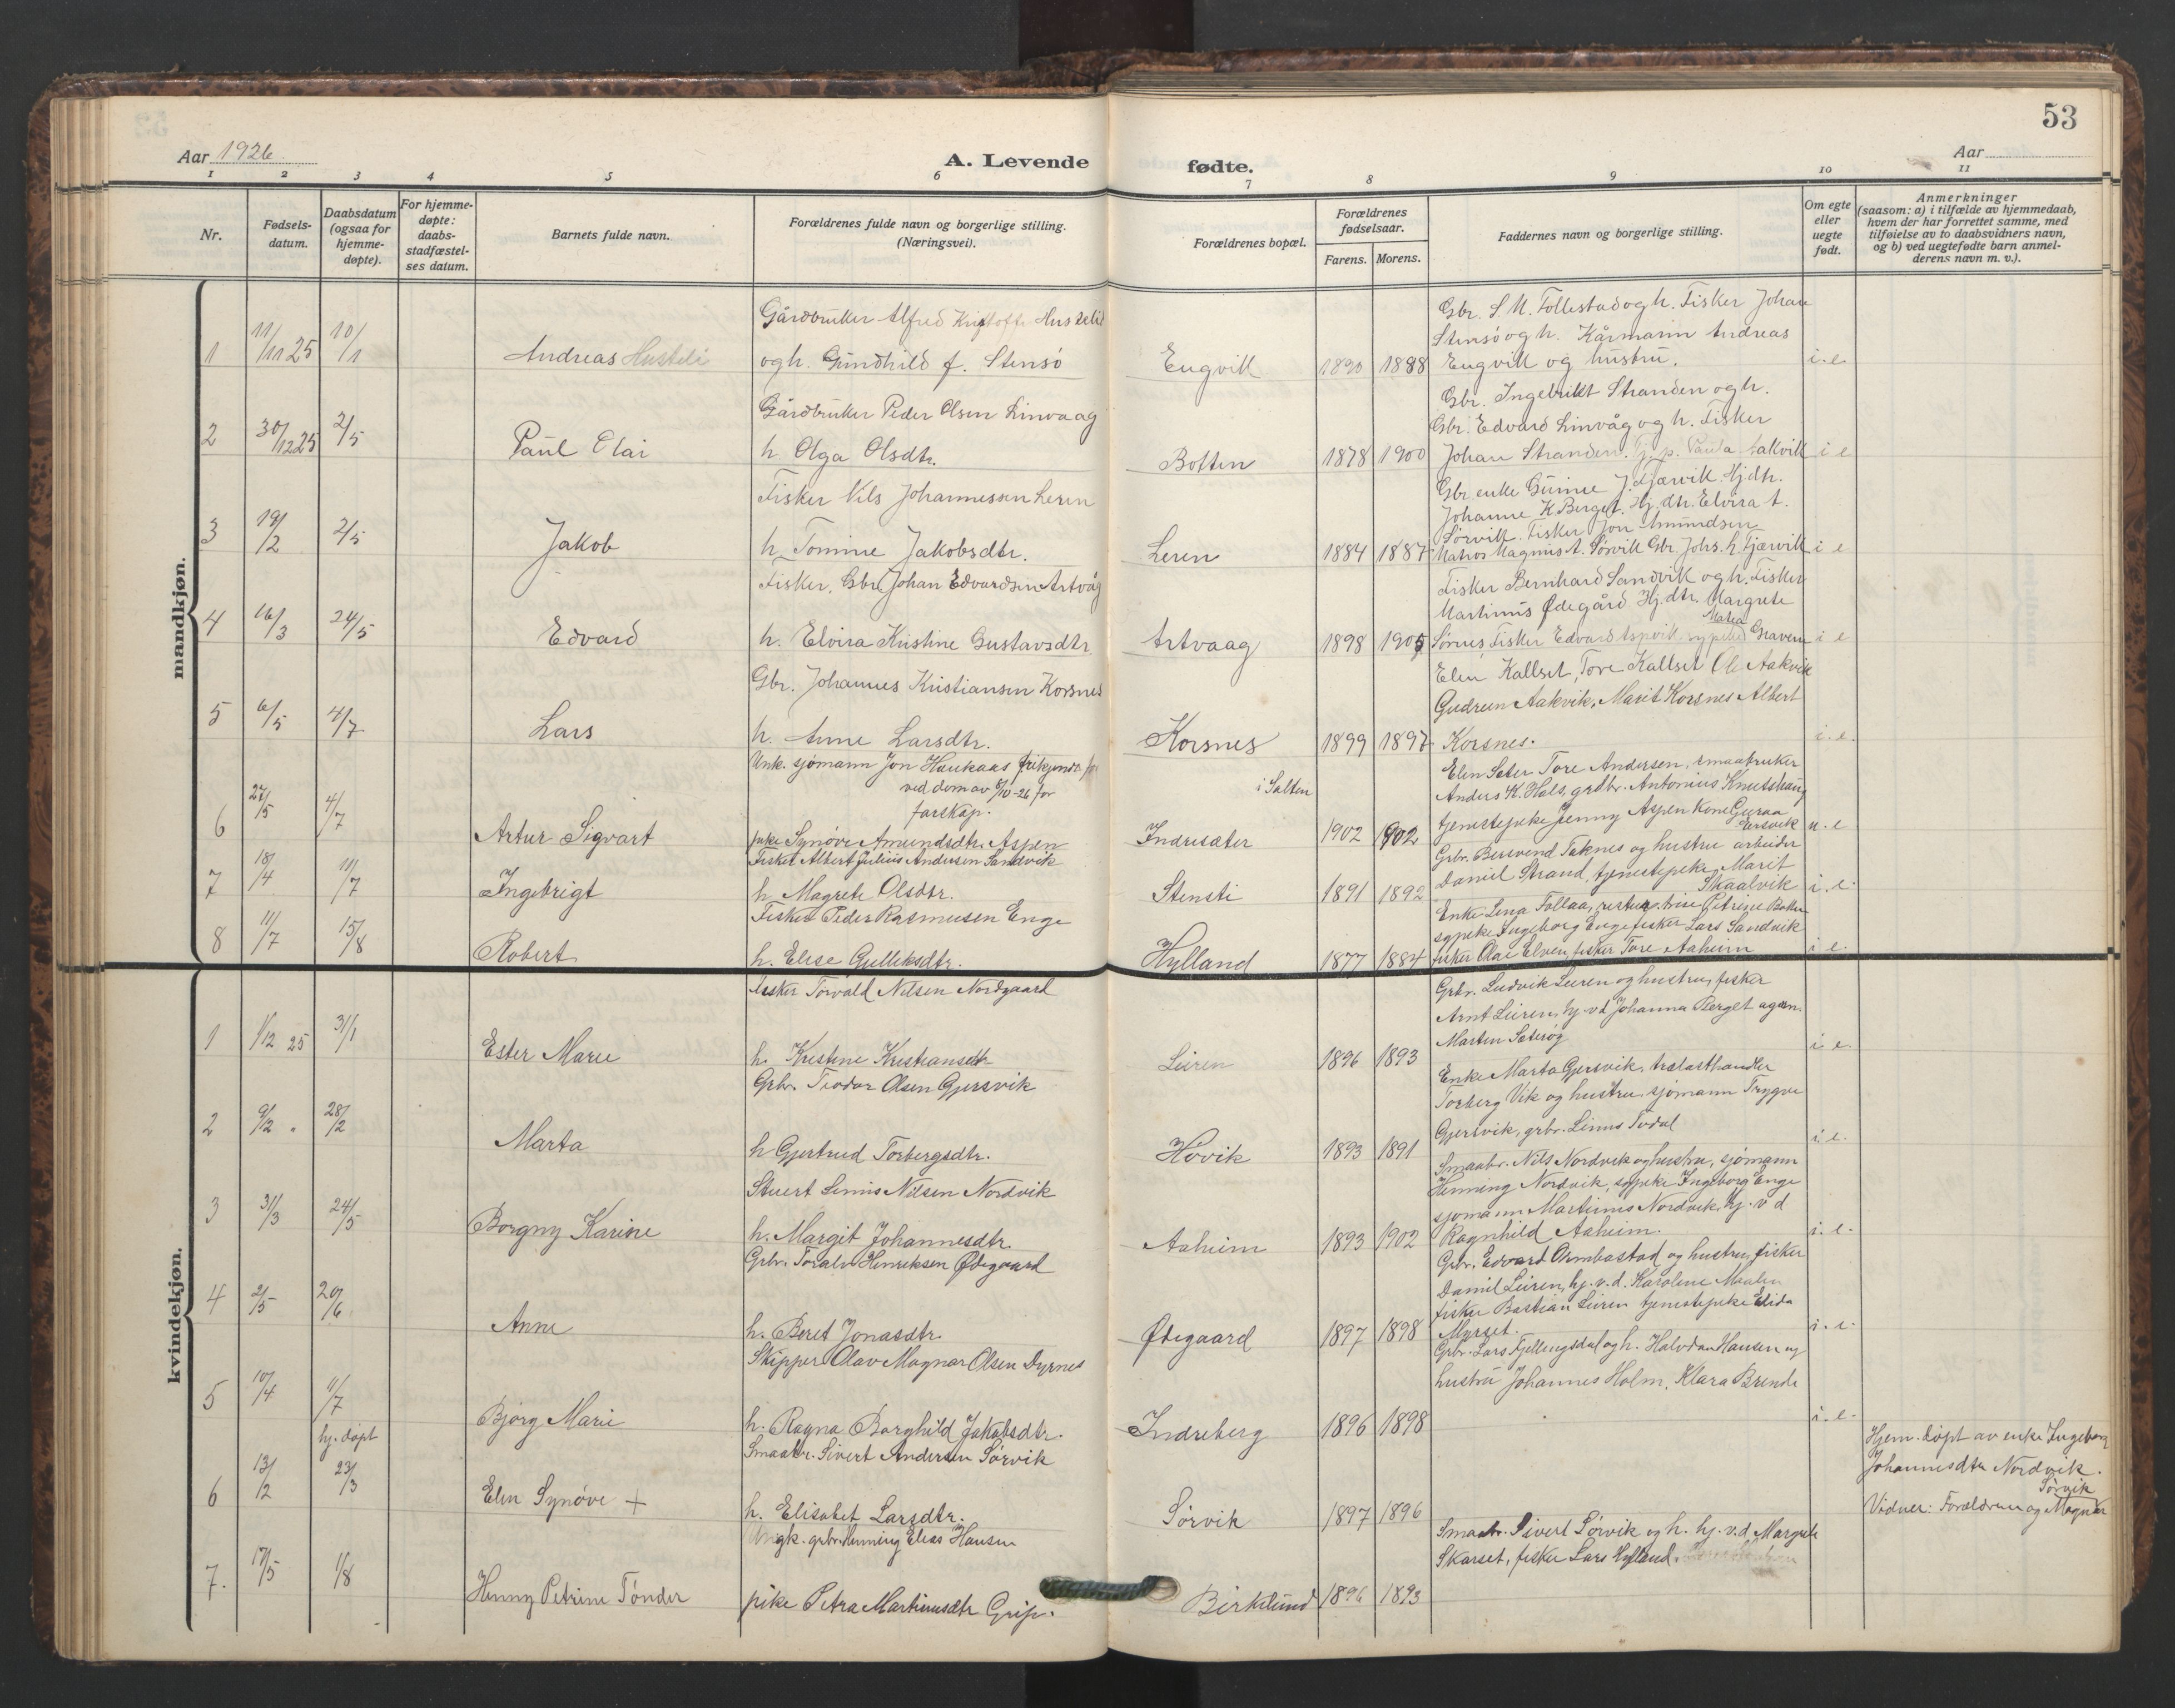 53
Aar 1926
A. Levende fødte.
Aar
1 2 3 4 5 6 7 8 9 10 11
Nr.
Fødsels-
datum.
Daabsdatum
(ogsaa for
hjemme-
døpte).
For hjemme-
døpte:
daabs-
stadfæstel-
ses datum.
Barnets fulde navn.
Forældrenes fulde navn og borgerlige stilling.
(Næringsvei).
Forældrenes bopæl.
Forældrenes
fødselsaar.
Farens. Morens.
Faddernes navn og borgerlige stilling.
Om egte
eller
uegte
født.
Anmerkninger
(saasom: a) i tilfælde av hjemmedaab,
hvem der har forrettet samme, med
tilføielse av to daabsvidners navn,
og b) ved uegtefødte barn anmel-
derens navn m. v.).
mandkjøn.
1 11/11 25 10/1 Andreas Husteli
Gårdbruker Alfred Kristoffer Husteli
og h. Gundhild f. Stensö
Engvik 1890 1888
Gbr. S. M. Follestad og h. Fisker Johan
Stensö og h. Kårmann Andreas
Engvik og hustru. i. e.
2 30/12 25 2/5 Paul Olai
Gårdbruker Peder Olsen Linvaag
h. Olga Olsdtr.
Botten 1878 1900
Gbr. Ingebrikt Stranden og h.
Gbr. Edvard Linvåg og h. Fisker
Johan Stranden. Tj. p. Paula Aakvik i e
3 19/2 2/5 Jakob
Fisker Nils Johannessen Leren
h. Tomine Jakobsdtr.
Leren 1884 1887
Gbr. enke Gurine J. Fjærvik. Hj. dtr.
Johanne K Berget. Hj. dtr. Elvira A.
Sørvik. Fisker Jon Amundsen
Matros Magnus A. Sørvik Gbr. Johs. h. Fjærvik i e
4 16/3 24/5 Edvard
Fisker, Gbr. Johan Edvardsen Artvåg
h. Elvira Kristine Gustavsdtr.
Artvaag 1898 1905
Fisker Bernhard Sandvik og h. Fisker
Martinus Ødegård Hj. dtr. Margrete
Sønes Fisker Edvard Aspvik Graven i e
5 6/5 4/7 Lars
Gbr. Johannes Kristiansen Korsnes
h. Anne Larsdtr.
Korsnes 1899 1897
Elen Kallset, Tore Kallset Ole Aakvik
Gudrun Aakvik, Marit Korsnes Albert
Korsnes. i. e.
6 27/5 4/7 Artur Sigvart
Unk. sjømann Jon Haukaas frikjendt
ved dom av 8/10-26 for
farskap.
pike Synøve Amundsdtr. Aspen
i Salten
Indresæter 1902 1902
Elen Sæter Tore Andersen, smaabruker
Anders K. Hals, grdbr. Antonius Knutshaug
tjenestepike Jenny Aspen Kone Guraa
Ersvik u. e
7 18/4 11/7 Ingebrigt
Fisker Albert Julius Andersen Sandvik
h. Magrete Olsdtr.
Stensti 1891 1892
Grbr. Bersvend Taknes og hustru arbeider
Daniel Strand, tjenestepike Marit
Skaalvik i. e.
8 11/7 15/8 Robert
Fisker Peder Rasmussen Enge
h. Elise Gulleksdtr.
Hylland 1877 1884
Enke Lena Follaa, Petrine
sypike Ingeborg Enge fisker Lars Sandvik
fisker Olai Elven, fisker Tore Aaheim i e
kvindekjøn.
1 1/12 25 31/1 Ester Marie
Fisker Torvald Nilsen Nordgaard
h. Kristine Kristiansdtr
Leiren 1896 1893
Grbr. Ludvik Leiren og hustru, fisker
Arnt Leiren, hj. v d Johanna Berget agron.
Martin Sæterøy i. e.
2 9/2 28/2 Marta
Grbr. Teodor Olsen Gjersvik
h Gjertrud Torbergsdtr.
Høvik 1893 1891
Enke Marta Gjersvik, trælasthandler
Torberg Vik og hustru, sjømann Trygve
Gjersvik, grbr. Linus Todal i. e.
3 31/3 24/5 Borgny Karine
Stuert Linus Nilsen Nordvik
h. Margit Johannesdtr.
Aaheim 1893 1902
Smaabr. Nils Nordvik og hustru, sjømann
Henning Nordvik, sypike Ingeborg Enge
sjømann Martinus Nordvik, hj. v d
Ragnhild Aaheim. i. e.
4 2/5 20/6 Anne
Grbr. Toralv Henriksen Ødegaard
h. Beret Jonasdtr.
Ødegaard 1897 1898
Grbr. Edvard Ormbostad og hustru, fisker
Daniel Leiren, hj. v. d. Karoline Maalen
fisker Bastian Leiren tjenestepike Elida
Myrset. i. e.
5 10/4 11/7 Bjørg Marie
Skipper Olav Magnar Olsen Dyrnes
h. Ragna Borghild Jakobsdtr.
Indreberg 1896 1898
Grbr. Lars Fjellengsdal og h. Halvdan Hansen og
hustru Johannes Holm, Klara Brende i. e.
6 13/2 hj. døpt 23/3 Elen Synøve +
Smaabr. Sivert Andersen Sørvik
h. Elisabet Larsdtr.
Sørvik 1897 1896
Hjem. døpt av enke Ingeborg
Johannesdtr Nordvik.
Sørvik
Vidner: Forældrene og Magnar
7. 17/5 1/8 Henny Petrine Tønder
Ungk. grbr. Henning Elias Hansen
pike Petra Martinusdtr Grip.
Birkelund 1896 1893
Smaabr. Sivert Sørvik og h. hj. v. d Margrete
Skarset, fisker Lars Hylland.